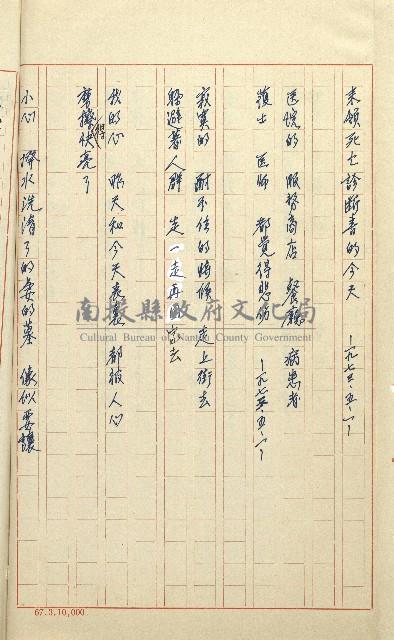 來領死亡診斷書的今天 一九七五.五.一一
醫院的 服務商店 餐廳 病患者
護士 医师 都覺得悲伤 一九七五.五.一一
寂寞的 耐不住的時候 走上街去
躲避著人群 走一走再回家去
我的心 昨天和今天表裏都被人心
磨擦得快亮了
小心 撥水洗清了的妻的墓 像似要讓
南投縣政府文化局
Cultural Bureau of Nantou County Government
67.3.10,000